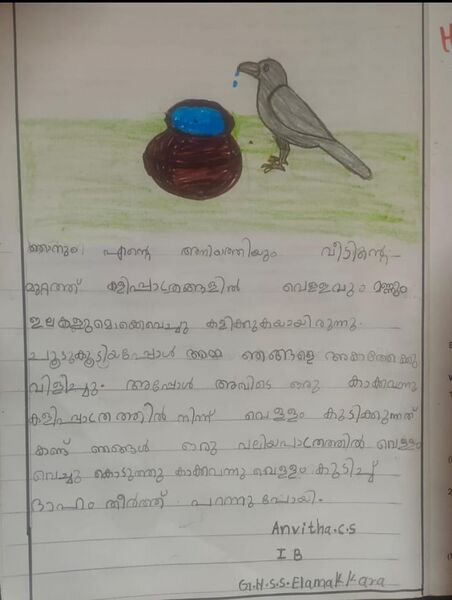 ഞാനും എന്റെ അനിയത്തിയും വീടിന്റെ
മുറ്റത്ത് കളിപ്പാത്രങ്ങളിൽ വെള്ളവും മണ്ണും
ഇലകളുമൊക്കെവെച്ചു കളിക്കുകയായിരുന്നു.
ചൂടുകൂടിയപ്പോൾ അമ്മ ഞങ്ങളെ അകത്തേക്കു
വിളിച്ചു. അപ്പോൾ അവിടെ ഒരു കാക്കവന്നു
കളിപ്പാത്രത്തിൽ നിന്ന് വെള്ളം കുടിക്കുന്നത്
കണ്ട് ഞങ്ങൾ ഒരു വലിയപാത്രത്തിൽ വെള്ളം
വെച്ചു കൊടുത്തു കാക്കവന്നു വെള്ളം കുടിച്ച്
ദാഹം തീർത്ത് പറന്നു പോയി.
Anvitha.c.s
I B
G.H.S.S.Elamakkara
H